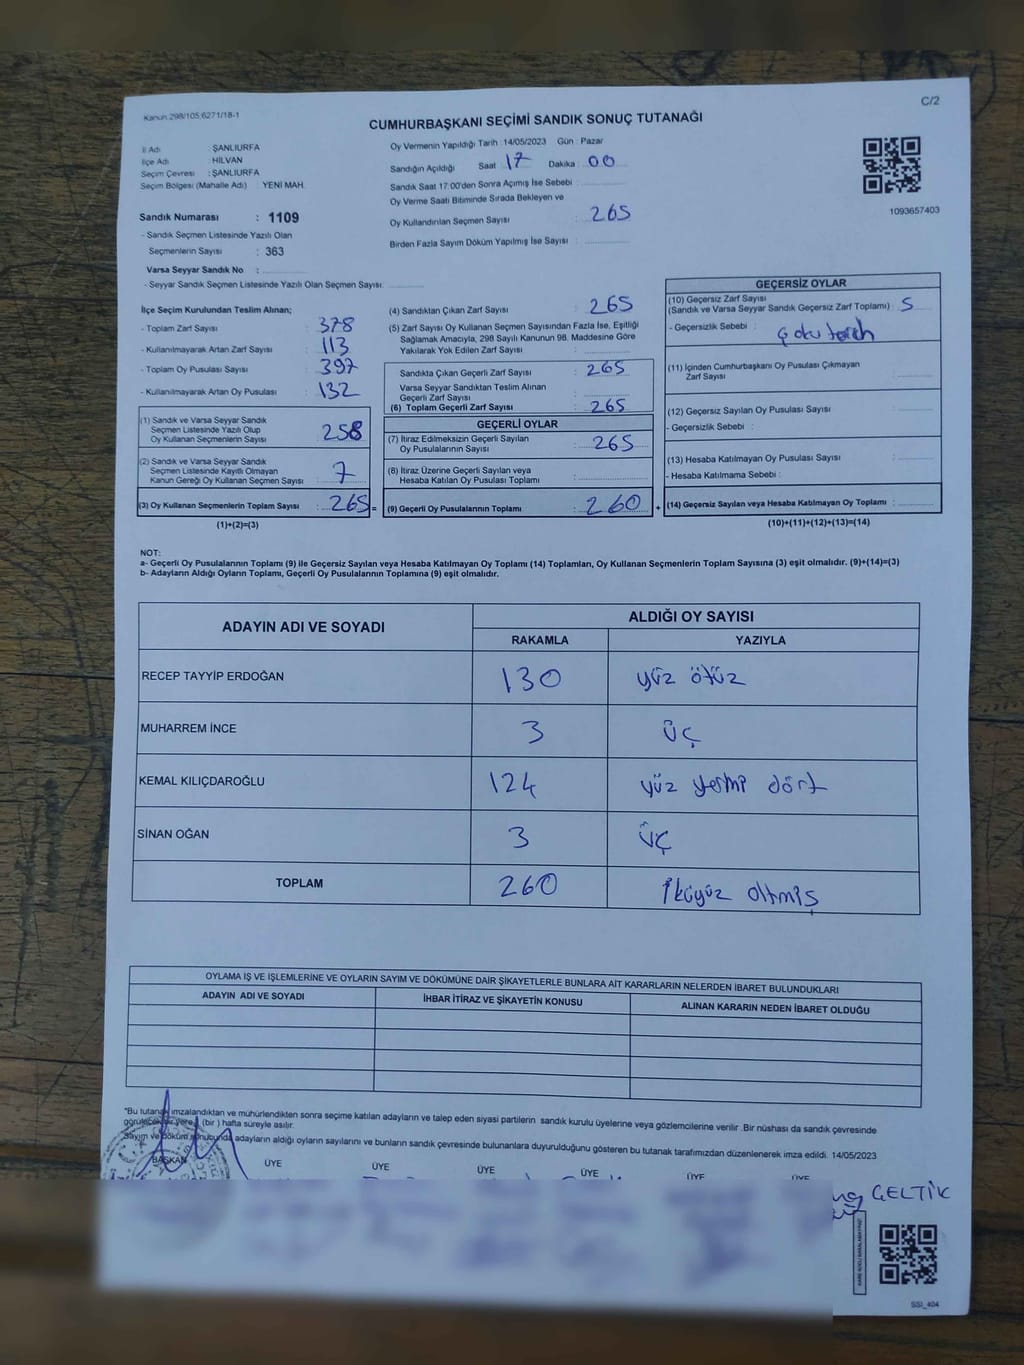 Kanun:298/105,6271/18-1
C/2
CUMHURBAŞKANI SEÇİMİ SANDIK SONUÇ TUTANAĞI
İl Adı : ŞANLIURFA
İlçe Adı : HİLVAN
Seçim Çevresi : ŞANLIURFA
Seçim Bölgesi (Mahalle Adı) : YENİ MAH.
Sandık Numarası : 1109
- Sandık Seçmen Listesinde Yazılı Olan
Seçmenlerin Sayısı : 363
Varsa Seyyar Sandık No :
- Seyyar Sandık Seçmen Listesinde Yazılı Olan Seçmen Sayısı:
Oy Vermenin Yapıldığı Tarih : 14/05/2023 Gün : Pazar
Sandığın Açıldığı Saat 17 Dakika 00
Sandık Saat 17:00'den Sonra Açımış İse Sebebi :
Oy Verme Saati Bitiminde Sırada Bekleyen ve
Oy Kullandırılan Seçmen Sayısı : 265
Birden Fazla Sayım Döküm Yapılmış İse Sayısı :
1093657403
İlçe Seçim Kurulundan Teslim Alınan;
- Toplam Zarf Sayısı : 378
- Kullanılmayarak Artan Zarf Sayısı : 113
- Toplam Oy Pusulası Sayısı : 397
- Kullanılmayarak Artan Oy Pusulası : 132
(1) Sandık ve Varsa Seyyar Sandık
Seçmen Listesinde Yazılı Olup
Oy Kullanan Seçmenlerin Sayısı : 258
(2) Sandık ve Varsa Seyyar Sandık
Seçmen Listesinde Kayıtlı Olmayan
Kanun Gereği Oy Kullanan Seçmen Sayısı : 7
(3) Oy Kullanan Seçmenlerin Toplam Sayısı : 265 =
(1)+(2)=(3)
(4) Sandıktan Çıkan Zarf Sayısı : 265
(5) Zarf Sayısı Oy Kullanan Seçmen Sayısından Fazla İse, Eşitliği
Sağlamak Amacıyla, 298 Sayılı Kanunun 98. Maddesine Göre
Yakılarak Yok Edilen Zarf Sayısı :
Sandıkta Çıkan Geçerli Zarf Sayısı : 265
Varsa Seyyar Sandıktan Teslim Alınan
Geçerli Zarf Sayısı :
(6) Toplam Geçerli Zarf Sayısı : 265
GEÇERLİ OYLAR
(7) İtiraz Edilmeksizin Geçerli Sayılan
Oy Pusulalarının Sayısı : 265
(8) İtiraz Üzerine Geçerli Sayılan veya
Hesaba Katılan Oy Pusulası Toplamı :
(9) Geçerli Oy Pusulalarının Toplamı : 260 +
GEÇERSİZ OYLAR
(10) Geçersiz Zarf Sayısı
(Sandık ve Varsa Seyyar Sandık Geçersiz Zarf Toplamı) : 5
- Geçersizlik Sebebi :
(11) İçinden Cumhurbaşkanı Oy Pusulası Çıkmayan
Zarf Sayısı :
(12) Geçersiz Sayılan Oy Pusulası Sayısı :
- Geçersizlik Sebebi :
(13) Hesaba Katılmayan Oy Pusulası Sayısı :
- Hesaba Katılmama Sebebi :
(14) Geçersiz Sayılan veya Hesaba Katılmayan Oy Toplamı :
(10)+(11)+(12)+(13)=(14)
NOT:
a- Geçerli Oy Pusulalarının Toplamı (9) ile Geçersiz Sayılan veya Hesaba Katılmayan Oy Toplamı (14) Toplamları, Oy Kullanan Seçmenlerin Toplam Sayısına (3) eşit olmalıdır. (9)+(14)=(3)
b- Adayların Aldığı Oyların Toplamı, Geçerli Oy Pusulalarının Toplamına (9) eşit olmalıdır.
ADAYIN ADI VE SOYADI ALDIĞI OY SAYISI
RAKAMLA YAZIYLA
RECEP TAYYİP ERDOĞAN 130 yüz ötüz
MUHARREM İNCE 3 üç
KEMAL KILIÇDAROĞLU 124 yüz yermi dört
SİNAN OĞAN 3 üç
TOPLAM 260 İküyüz altmış
OYLAMA İŞ VE İŞLEMLERİNE VE OYLARIN SAYIM VE DÖKÜMÜNE DAİR ŞİKAYETLERLE BUNLARA AİT KARARLARIN NELERDEN İBARET BULUNDUKLARI
ADAYIN ADI VE SOYADI İHBAR İTİRAZ VE ŞİKAYETİN KONUSU ALINAN KARARIN NEDEN İBARET OLDUĞU
"Bu tutanak imzalandıktan ve mühürlendikten sonra seçime katılan adayların ve talep eden siyasi partilerin sandık kurulu üyelerine veya gözlemcilerine verilir .Bir nüshası da sandık çevresinde
görülebilecek bir yere 1 (bir ) hafta süreyle asılır.
Sayım ve döküm sonucunda adayların aldığı oyların sayılarını ve bunların sandık çevresinde bulunanlara duyurulduğunu gösteren bu tutanak tarafımızdan düzenlenerek imza edildi. 14/05/2023
BAŞKAN ÜYE ÜYE ÜYE ÜYE ÜYE ÜYE
GELTİK
SSI_404